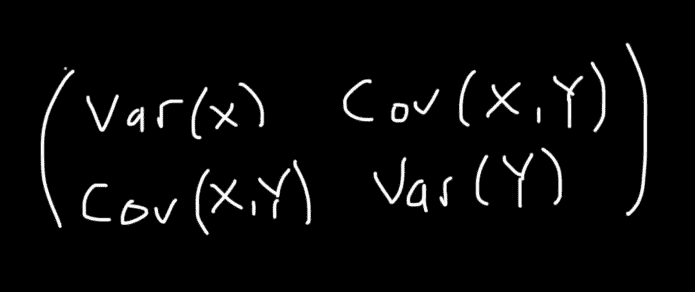 ( Var(x) Cov(X,Y) )
( Cov(X,Y) Var(Y) )